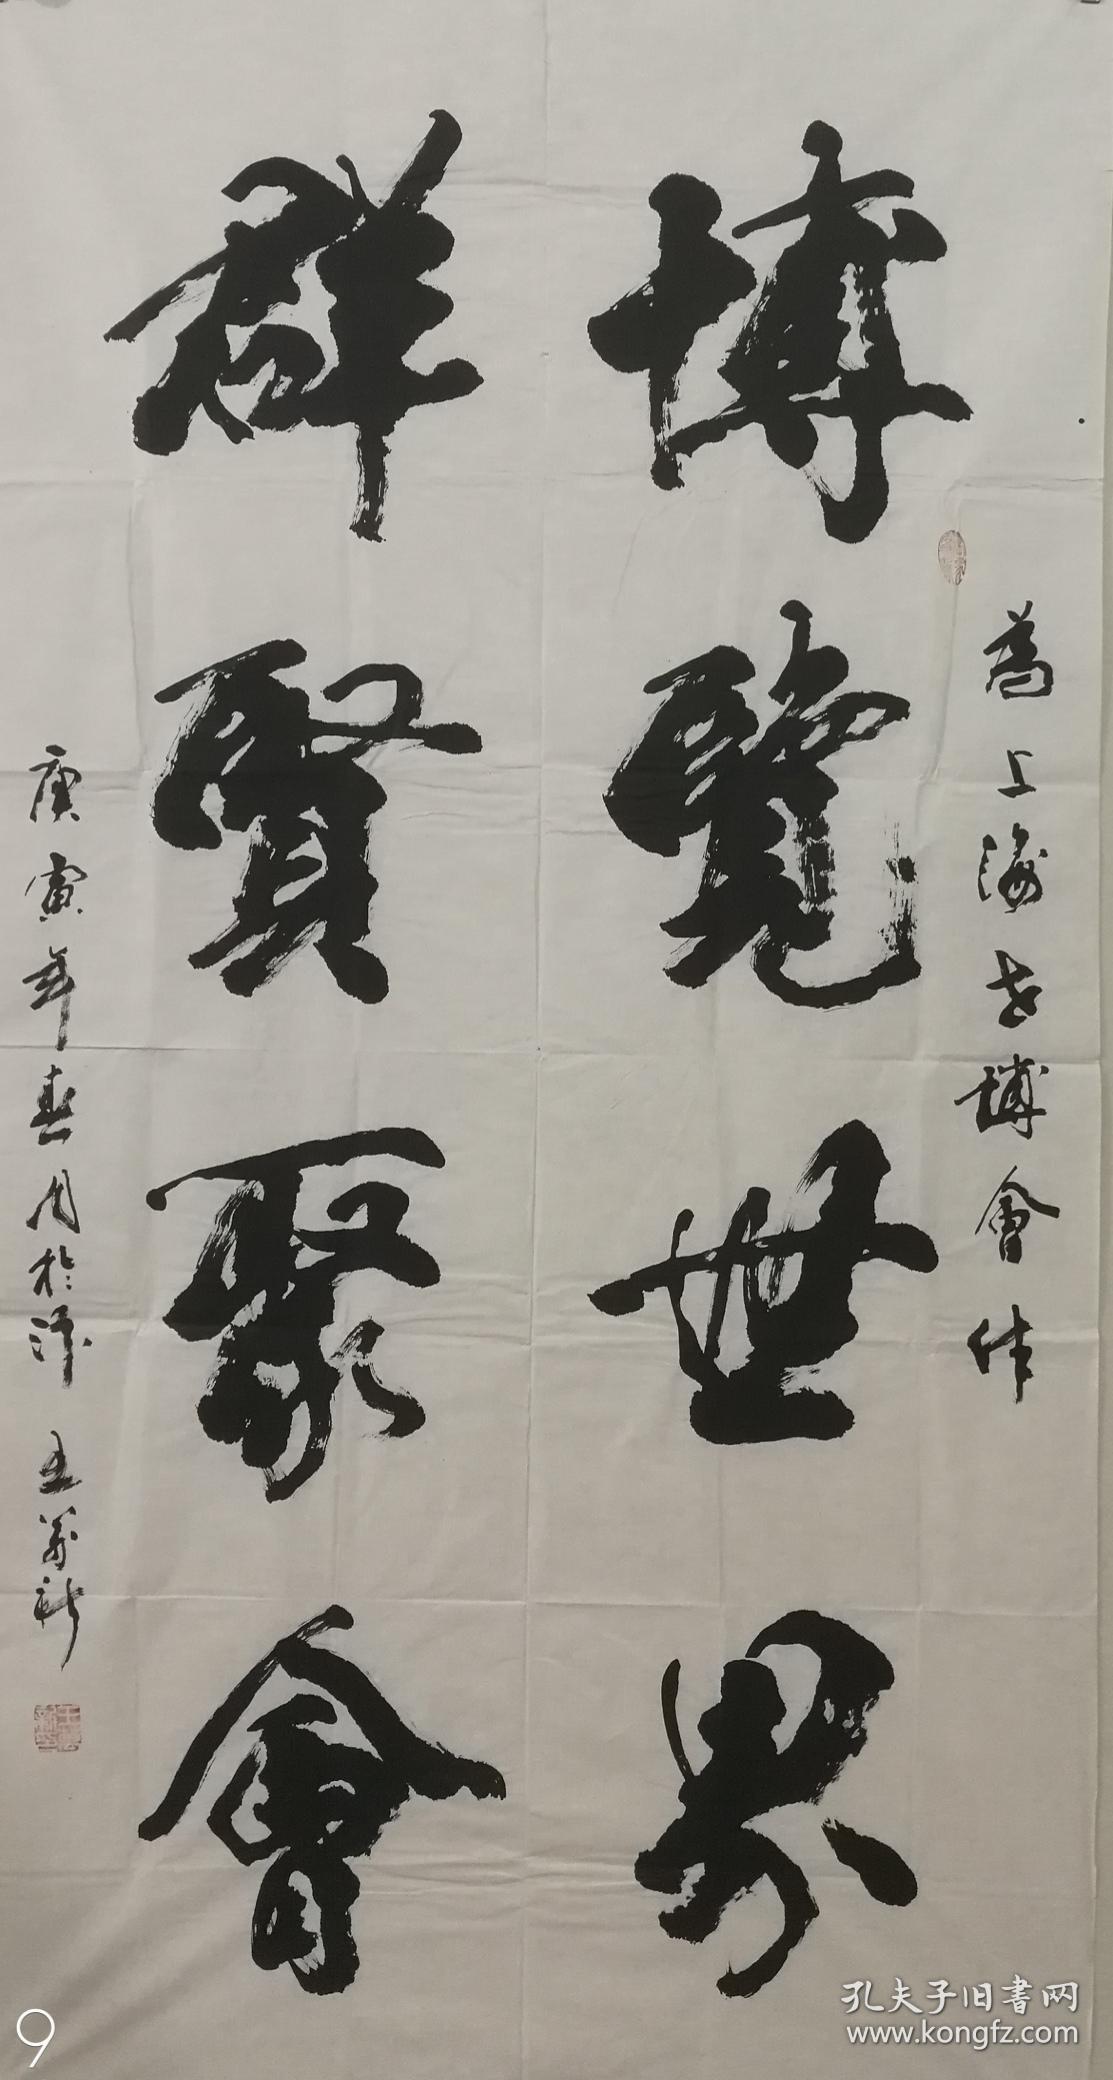 為上海世博會作
博覽世界
群賢聚會
庚寅年春月於汴 王萬新
9
孔夫子旧书网
www.kongfz.com